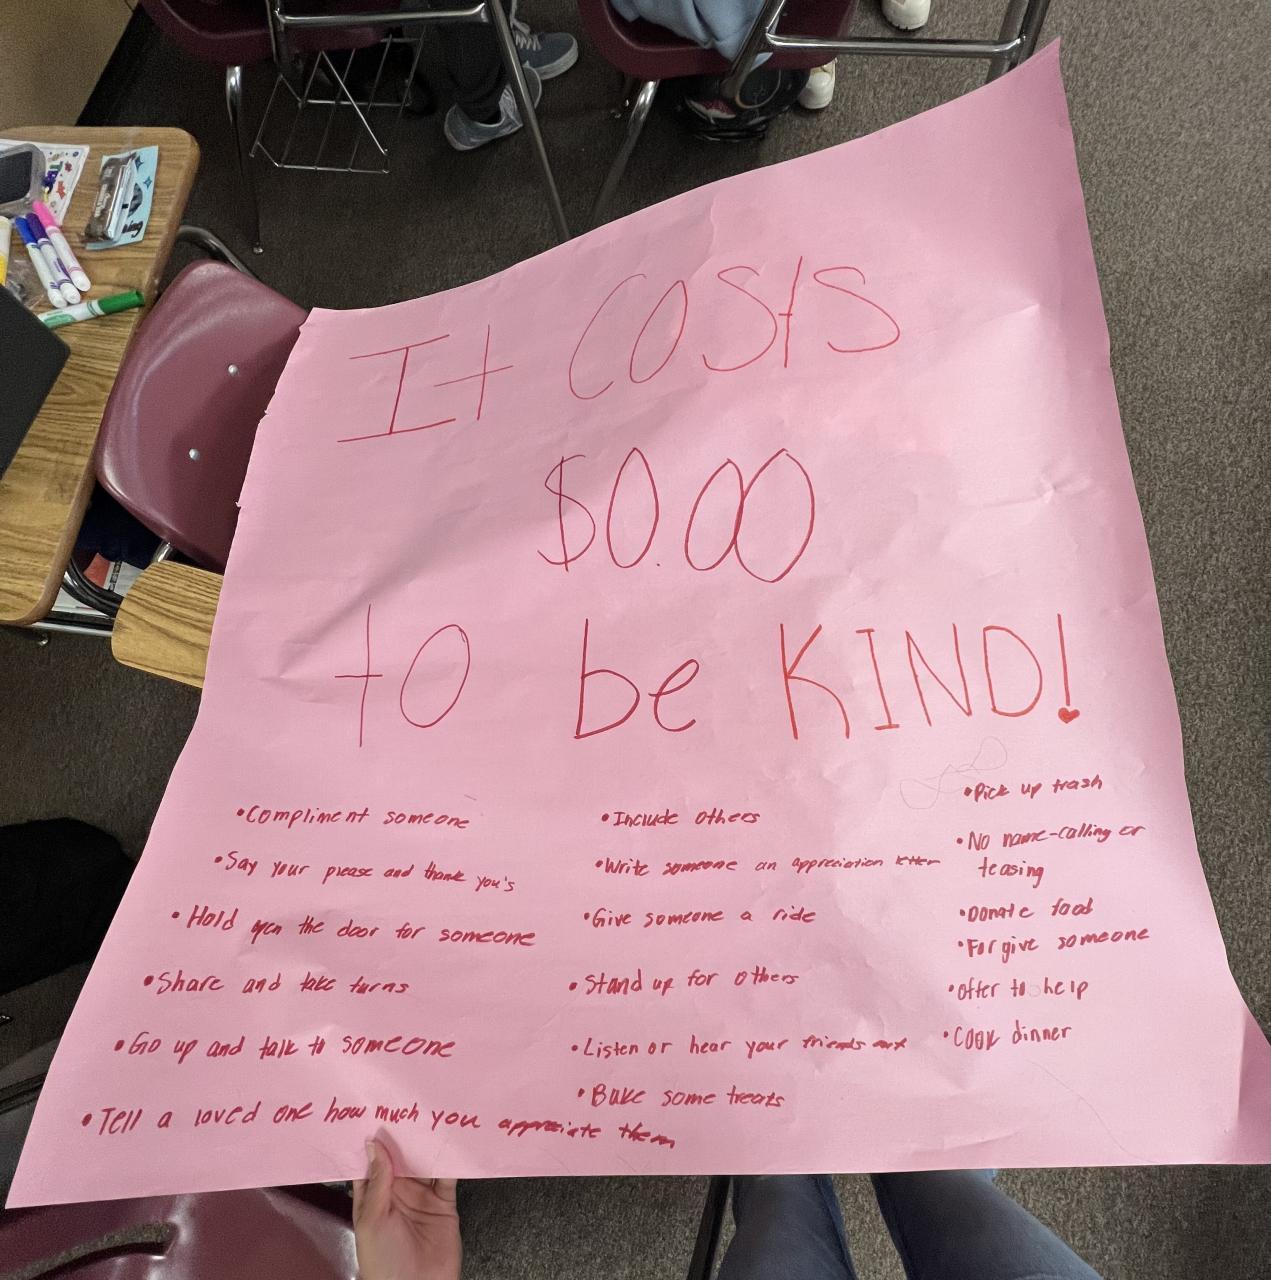 It COSTS
$0.00
to be KIND!
•Compliment someone
•Say your please and thank you's
•Hold open the door for someone
•Share and take turns
•Go up and talk to someone
•Tell a loved one how much you appreciate them
•Include others
•Write someone an appreciation letter
•Give someone a ride
•Stand up for others
•Listen or hear your friends out
•Bake some treats
•Pick up trash
•No name-calling or
teasing
•Donate food
•Forgive someone
•Offer to help
•Cook dinner